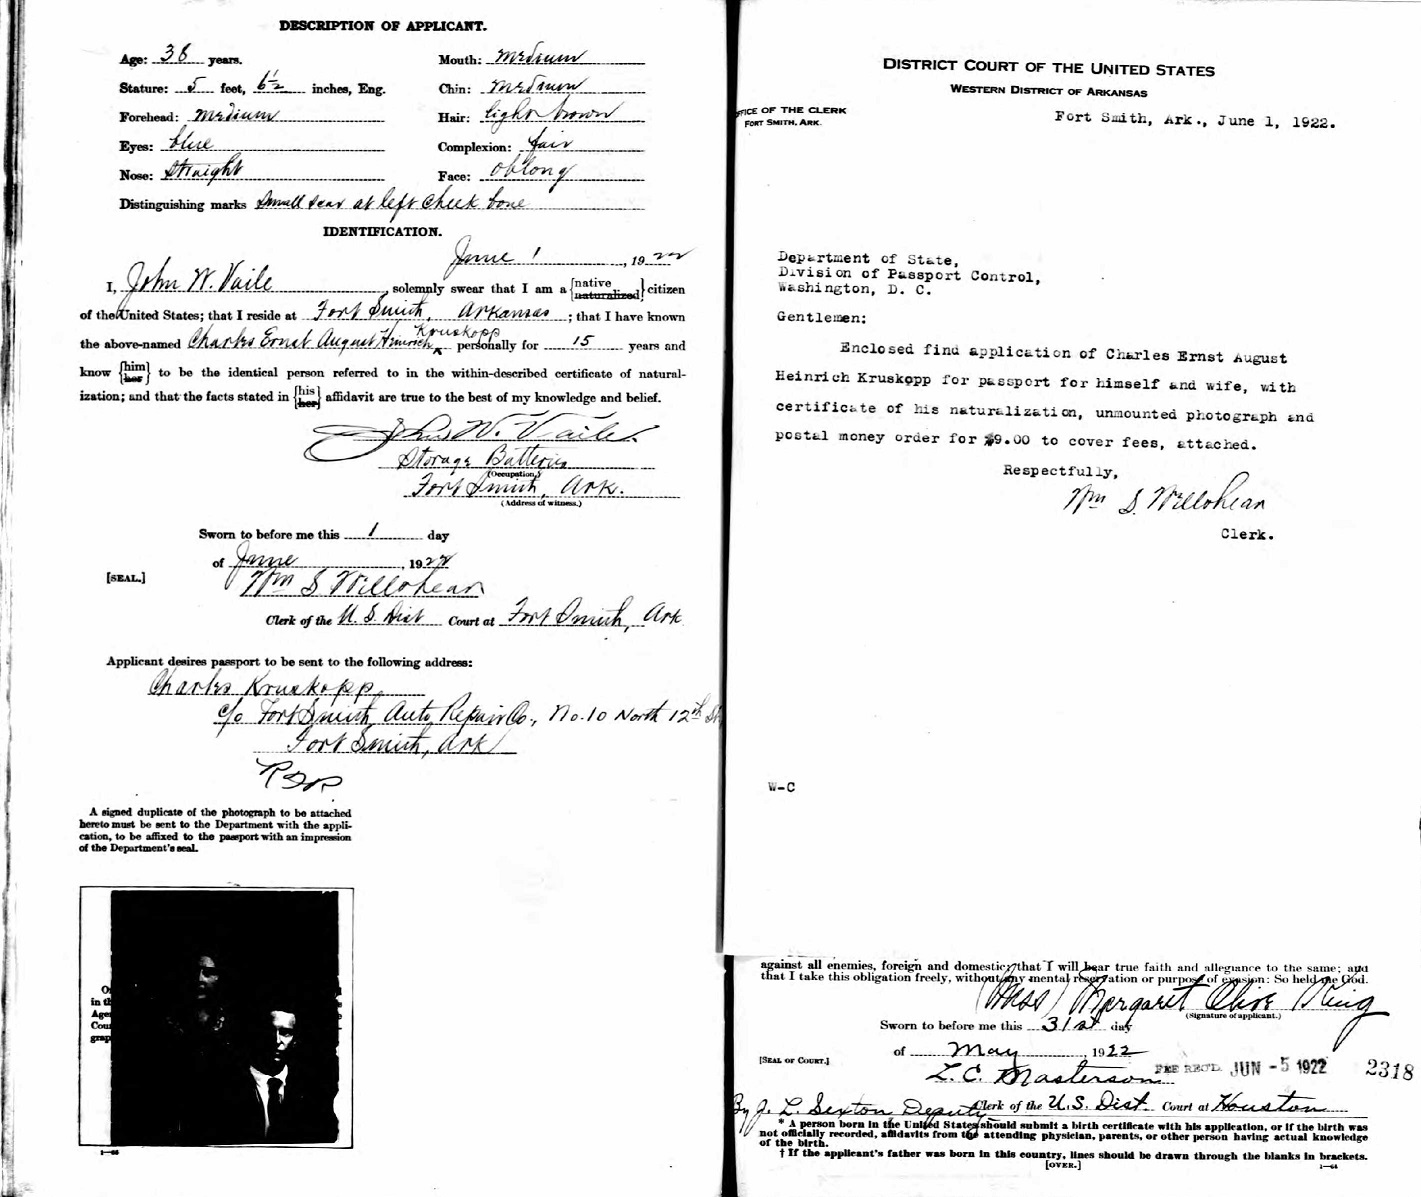 DESCRIPTION OF APPLICANT.
Age: 38 years.
Stature: 5 feet, 6½ inches, Eng.
Forehead: medium
Eyes: blue
Nose: straight
Mouth: medium
Chin: medium
Hair: light brown
Complexion: fair
Face: oblong
Distinguishing marks small scar at left cheek bone
IDENTIFICATION.
June 1, 1922
I, John W. Vaile, solemnly swear that I am a {native naturalized} citizen
of the United States; that I reside at Fort Smith, Arkansas; that I have known
the above-named Charles Ernst August Heinrich Kruskopp personally for 15 years and
know {him her} to be the identical person referred to in the within-described certificate of natural-
ization; and that the facts stated in {his her} affidavit are true to the best of my knowledge and belief.
John W. Vaile.
Storage Batteries
(Occupation.)
Fort Smith, Ark.
(Address of witness.)
Sworn to before me this 1 day
of June, 1922
[SEAL.]
Wm S Willohean
Clerk of the U. S. Dist Court at Fort Smith, Ark
Applicant desires passport to be sent to the following address:
Charles Kruskopp,
c/o Fort Smith Auto Repair Co., No. 10 North 12th St
Fort Smith, Ark
A signed duplicate of the photograph to be attached
hereto must be sent to the Department with the appli-
cation, to be affixed to the passport with an impression
of the Department's seal.
O
in th
Age
Cou
grap
1—66
DISTRICT COURT OF THE UNITED STATES
WESTERN DISTRICT OF ARKANSAS
FICE OF THE CLERK
FORT SMITH, ARK.
Fort Smith, Ark., June 1, 1922.
Department of State,
Division of Passport Control,
Washington, D. C.
Gentlemen:
Enclosed find application of Charles Ernst August
Heinrich Kruskopp for passport for himself and wife, with
certificate of his naturalization, unmounted photograph and
postal money order for $9.00 to cover fees, attached.
Respectfully,
Wm S. Willohean
Clerk.
W-C
against all enemies, foreign and domestic; that I will bear true faith and allegiance to the same; and
that I take this obligation freely, without any mental reservation or purpose of evasion: So help me God.
(Miss) Margaret Olive King
(Signature of applicant.)
Sworn to before me this 31st day
of May, 1922
[SEAL OF COURT.]
L. C. Masterson
FEE REC'D. JUN -5 1922
2318
By J. L. Sexton Deputy Clerk of the U.S. Dist. Court at Houston
* A person born in the United States should submit a birth certificate with his application, or if the birth was
not officially recorded, affidavits from the attending physician, parents, or other person having actual knowledge
of the birth.
† If the applicant's father was born in this country, lines should be drawn through the blanks in brackets.
[OVER.]
1—64